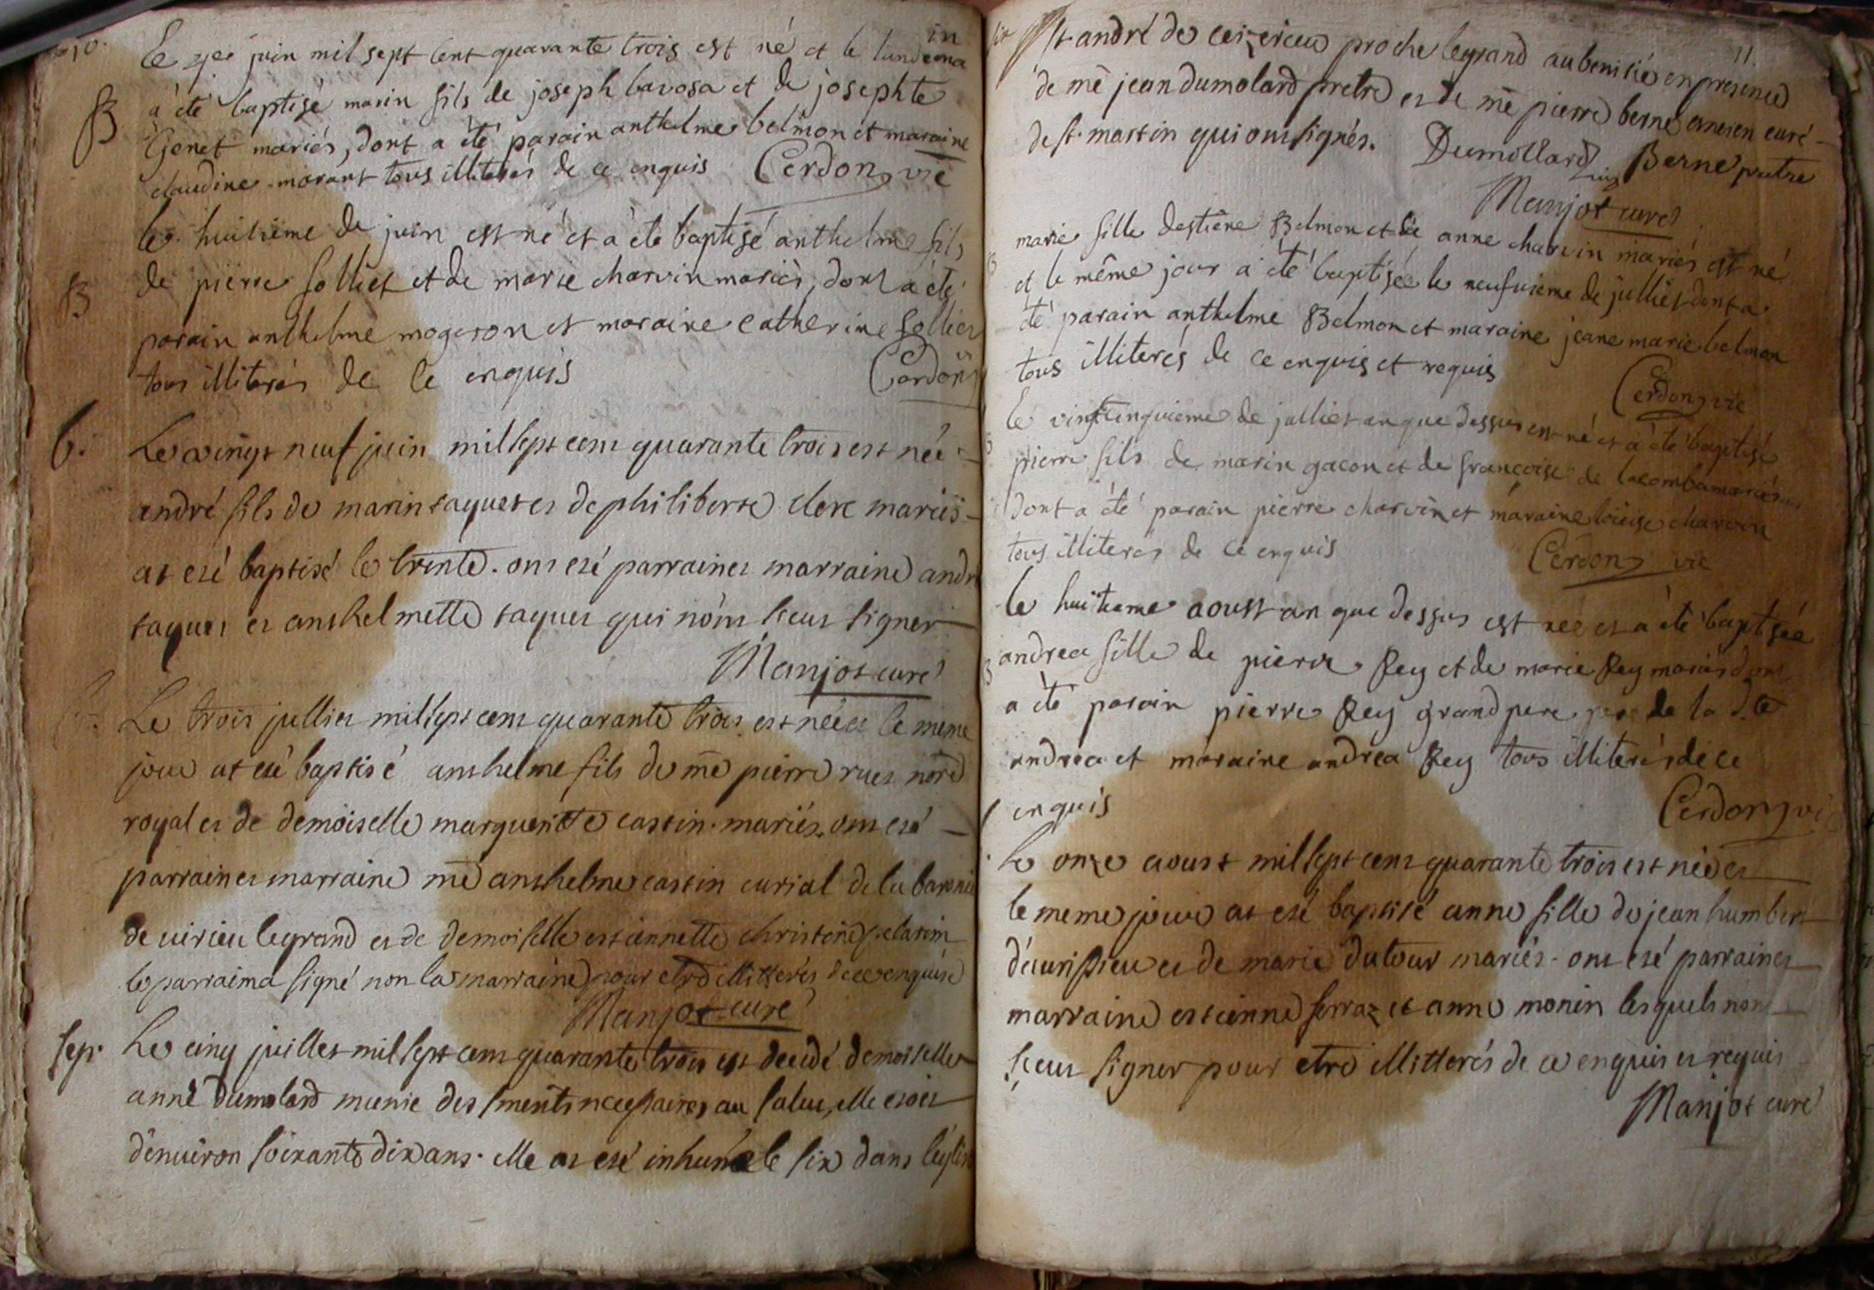 le juin mil sept cent quarante trois est né et le lundemain
a été baptisé marin fils de joseph bavosa et de josephte
Genet mariés, dont a été parain anthelme belmon et maraine
claudine morant tous illiterés de ce enquis Cerdon vic
B
le huitieme de juin est né et a été baptisé anthelme fils
de pierre solliet et de marie charvin mariés, dont a été
parain anthelme mogeron et maraine catherine solliet
tous illiterés de ce enquis Cerdon
B
b. Le vingt neuf juin mil sept cent quarante trois est né
andré fils de marin taquet et de philiberte clerc mariés
at eté baptisé le trente. ont eté parrain et marraine andr
taquet et anthelmette taquet qui n'ont sceut signer
Manjot curé
Le trois jullier mil sept cent quarante trois est né et le meme
jour at eté baptisé anthelme fils de me pierre ruet nore
royal et de demoiselle marguerite castin mariés. ont eté
parrain et marraine me anthelme castin curial de la baronie
de virieu le grand et de demoiselle estiennette christine
le parrain a signé non la marraine pour etre illitterés de ce enquise
Manjot curé
sep. Le cinq juillet mil sept cent quarante trois est decedé demoiselle
anne dumolard munie des sments necessaires au salut, elle etoit
d'environ soixante dix ans. elle at eté inhumée le six dans l'eglise
11.
st andré de ceizerieu proche legrand au benitié en presence
de me jean dumolard pretre et de me pierre berne ancien curé
de st. martin qui ont signés. Dumollard Berne pretre
Manjot curé
marie fille destiene Belmon et de anne charvin mariés est né
et le même jour a été baptisée le neufvieme de julliet dont a
été parain anthelme Belmon et maraine jeane marie belmon
tous illiterés de ce enquis et requis
Cerdon vic
le vingtcinquieme de julliet an que dessus est né et a été baptisé
pierre fils de marin gacon et de françoise de lacomba mariés
dont a été parain pierre charvin et maraine loüise charvin
tous illiterés de ce enquis Cerdon vic
le huitieme aoust an que dessus est née et a été baptisée
B andrea fille de pierre Rey et de marie Rey mariés dont
a été parain pierre Rey grand pere de la d.te
andrea et maraine andrea Rey tous illiterés de ce
enquis Cerdon vic
Le onze aoust mil sept cent quarante trois est née et
le meme jour at eté baptisé anne fille de jean humbert
d'eurissieu et de marie dutour mariés. ont eté parrain et
marraine estienne ferraz et anne monin lesquels n'ont
sceut signer pour etre illitterés de ce enquis et requis
Manjot curé